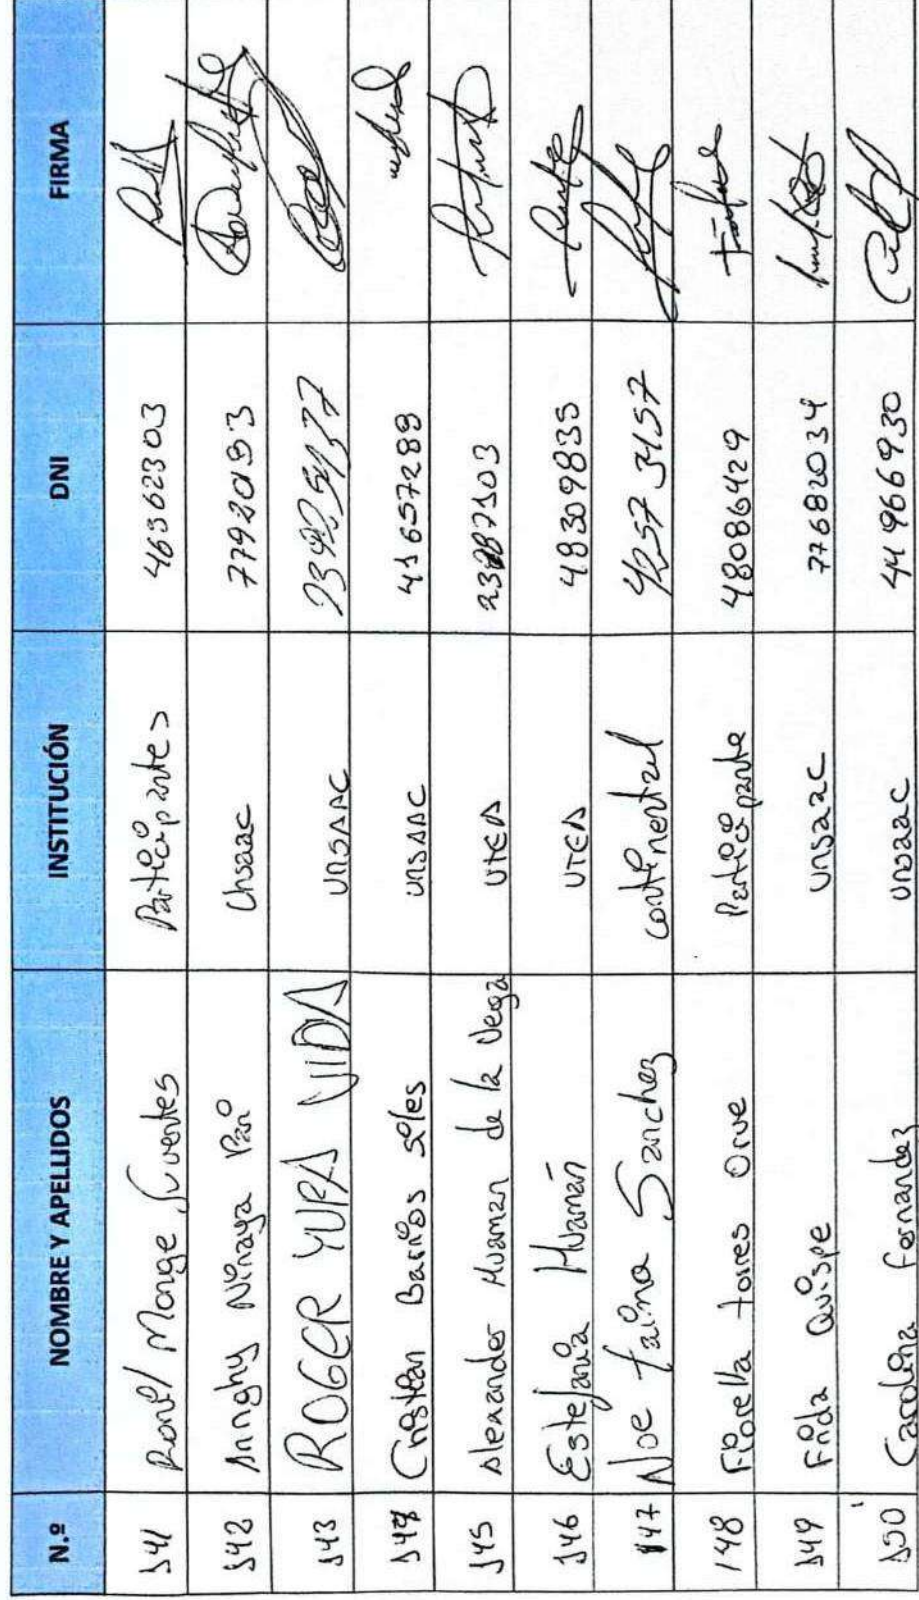 N.º NOMBRE Y APELLIDOS INSTITUCIÓN DNI FIRMA
141 Ronil Monge Fuentes Participantes 46362303
142 Anghy Ninaya Pari Unsaac 77920193
143 ROGER YUPA VIDA UNSAAC
144 Cristian Barrios Soles UNSAAC 41657289
145 Alexander Huaman de la Vega UTEA
146 Estefania Huamán UTEA 48309835
147 Noe Taina Sanchez continental 42573157
148 Fiorella torres Orve Participante 48086429
149 Frida Quispe Unsaac 77682034
150 Carolina Fernandez Unsaac 44966930